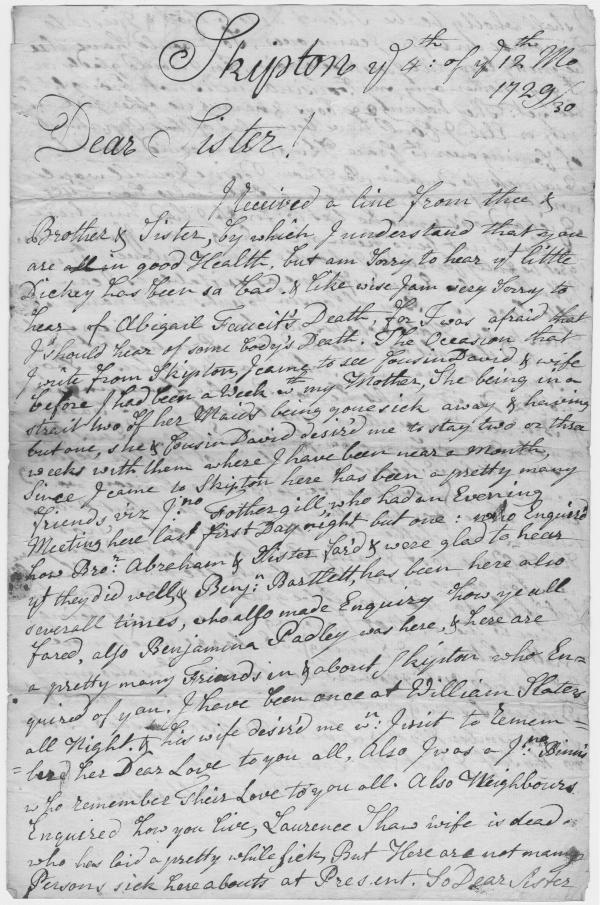 Skipton ye 4th: of ye 12th Mo
1729/30
Dear Sister!
I Received a line from thee &
Brother & Sister, by which I understand that you
are all in good Health, but am Sorry to hear yt little
Dickey has been sa bad. & like wise I am very Sorry to
hear of Abigail Faucit's Death, for I was afraid that
I should hear of some body's Death. The Occasion that
I write from Skipton, I came to see Cousin David & wife
before I had been a Week wth my Mother, She being in a
strait two of her Maids being gone sick away & having
but one, she & Cousin David desir'd me to stay two or three
weeks with them where I have been near a month,
Since I came to Skipton here has been a pretty many
friends, viz Jno Fothergill, who had an Evening
Meeting here last first Day night but one: who Enquir'd
how Bror. Abraham & Sister far'd & were glad to hear
yt they did well & Benjn Bartlett, has been here also
severall times, who also made Enquiry how ye all
fared, also Benjamina Padley was here, & here are
a pretty many Friends in & about Skipton who En=
quired of you. I have been once at William Slaters
all Night. & his wife desir'd me wn: I writ to Remem=
=berd her Dear Love to you all, Also I was a Jno: Binns
who remember their Love to you all. Also Neighbours
Enquired how you live, Laurence Shaw wife is dead
who has laid a pretty while sick, But Here are not many
Persons sick here abouts at Present. So Dear Sister